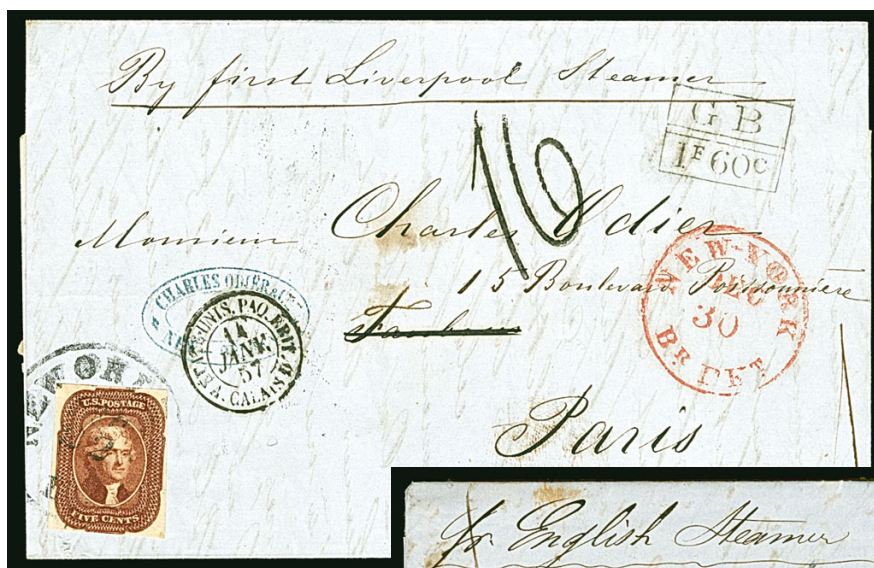 By first Liverpool Steamer
G B
1F60C
16
Monsieur Charles Odier
15 Boulevard Poissonnière
Paris
NEW-YORK
DEC
30
BR PKT
CHARLES ODIER &
ET.UNIS. PAQ. BRIT. D
14
JANV.
57
CALAIS
NEW OR
U.S. POSTAGE
FIVE CENTS
pr English Steamer